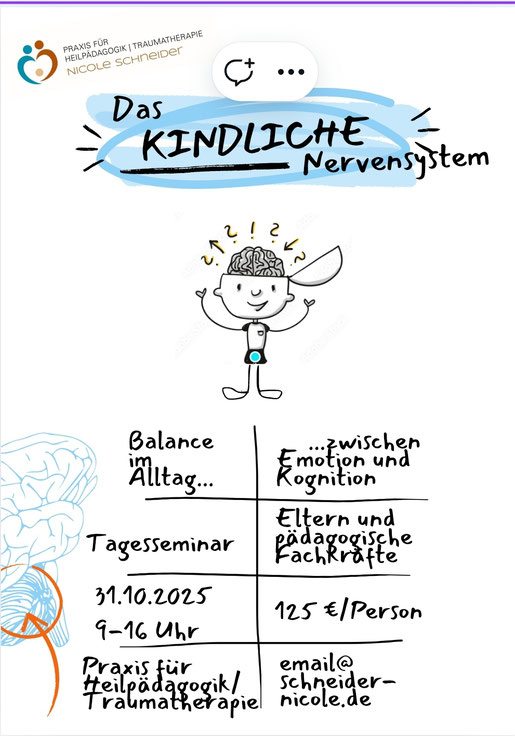 PRAXIS FÜR
HEILPÄDAGOGIK | TRAUMATHERAPIE
NICOLE SCHNEIDER
Das
KINDLICHE
Nervensystem
? ? ! ? ?
Balance
im
Alltag...
...zwischen
Emotion und
Kognition
Tagesseminar
Eltern und
pädagogische
Fachkräfte
31.10.2025
9-16 Uhr
125 €/Person
Praxis für
Heilpädagogik/
Traumatherapie
email@
schneider-
nicole.de